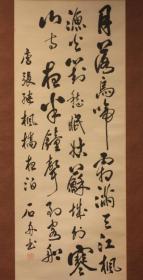 月落烏啼霜滿天江楓
漁火對愁眠姑蘇城外寒
山寺夜半鐘聲到客船
唐張繼楓橋夜泊 石舟書